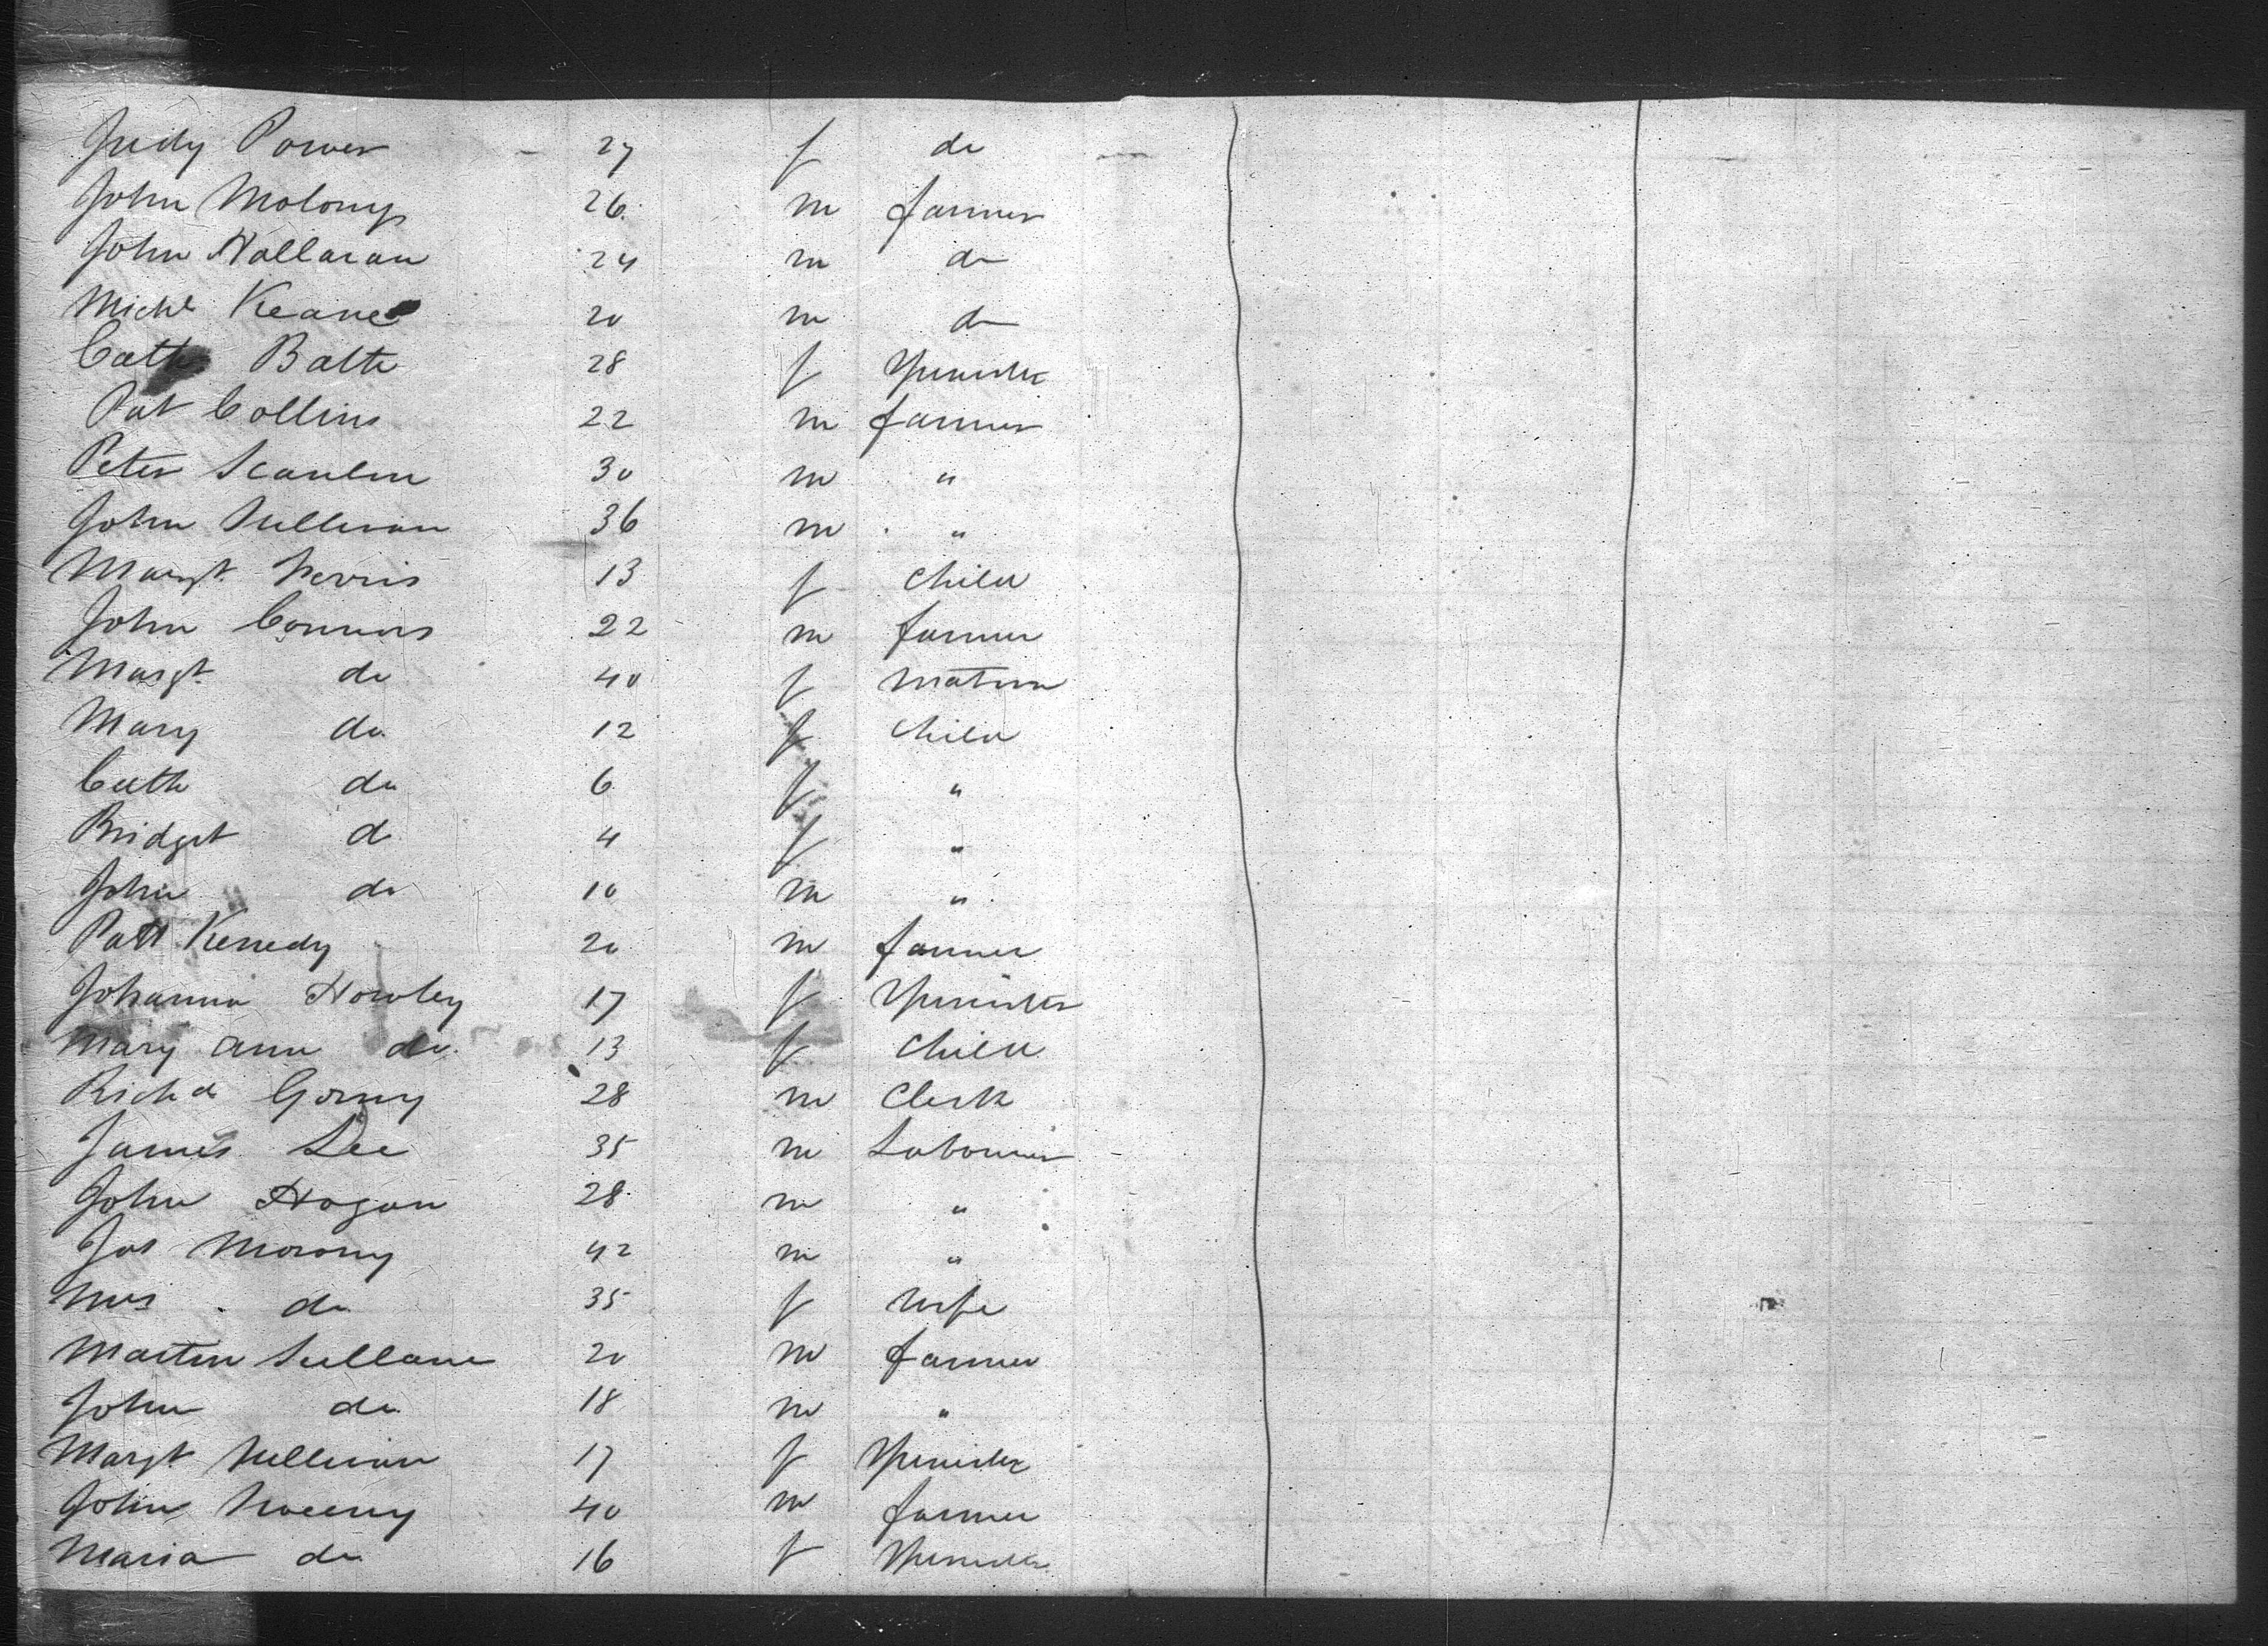 Judy Power 27 f do
John Molony 26 m farmer
John Hallaran 24 m do
Michl Keane 20 m do
Cath Batte 28 f Spinster
Pat Collins 22 m farmer
Peter Scanlon 30 m "
John Sullivan 36 m "
Margt 13 f Child
John Connors 22 m farmer
Margt do 40 f Matron
Mary do 12 f Child
Cath do 6 f "
Bridget do 4 f "
John do 10 m "
Patt Kenedy 20 m farmer
Johanna Howley 17 f Spinster
Mary Ann do 13 f Child
Richd 28 m Clerk
James Lee 35 m Labourer
John Hogan 28 m "
Jas Morony 42 m "
Mrs do 35 f Wife
Martin Sullane 20 m farmer
John do 18 m "
Margt Sullivan 17 f Spinster
John Sweeny 40 m farmer
Maria do 16 f Spinster